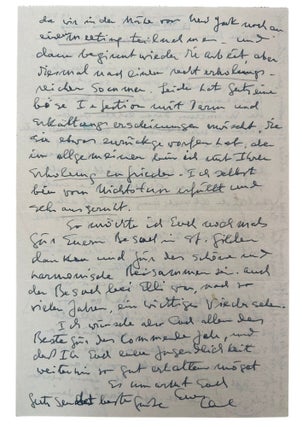 da wir in der Nähe von New York noch an
einem Meeting teilnehmen und
dann beginnt wieder die Arbeit, aber
diesmal nach einem recht erholungs-
reichen Sommer. Leider hat Gets eine
böse Infektion mit Darm und
Erkältungserscheinungen erwischt, die
sie etwas zurückgeworfen hat, aber
im allgemeinen bin ich mit Ihrer
Erholung zufrieden. Ich selbst
bin vom Nichtstun erfüllt und
sehr ausgeruht.
So möchte ich Euch nochmals
für Euren Besuch in St. Gilgen
danken und für das schöne und
harmonische Beisammensein. auch
der Besuch bei Elli war, nach so
vielen Jahren, ein wichtiges Wiedersehen.
Ich wünsche also Euch allen das
Beste für das Kommende Jahr, und
daß Ihr Euch eure Jugendlichkeit
weiterhin so gut erhalten möget
Es umarmt Euch
Gets sendet beste Grüße Euer